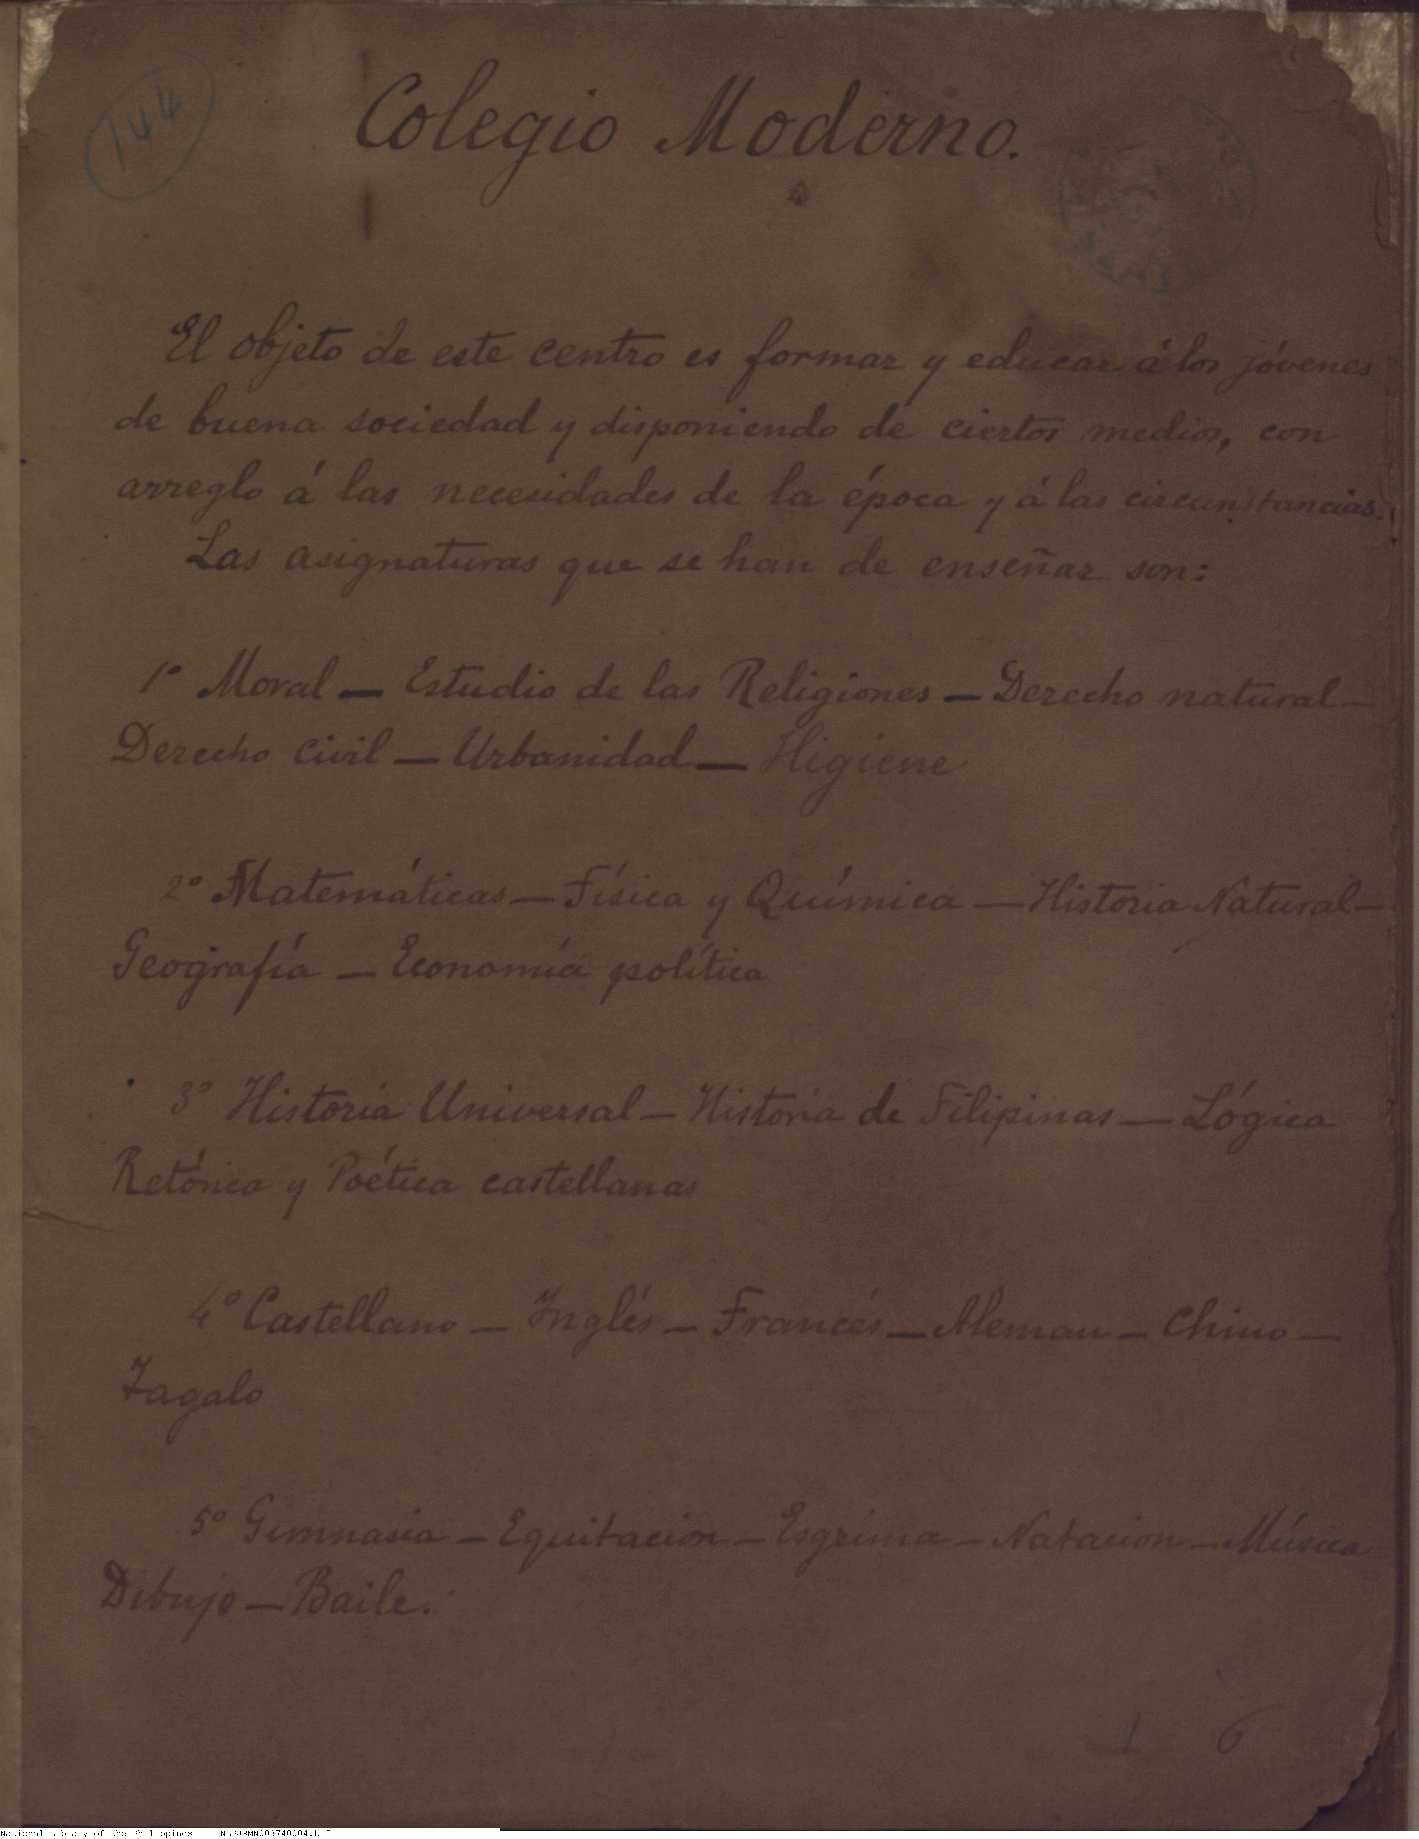 144
Colegio Moderno.
El objeto de este centro es formar y educar á los jóvenes
de buena sociedad y disponiendo de ciertos medios, con
arreglo á las necesidades de la época y á las circunstancias.
Las asignaturas que se han de enseñar son:
1º Moral — Estudio de las Religiones — Derecho natural —
Derecho civil — Urbanidad — Higiene
2º Matemáticas — Física y Química — Historia Natural —
Geografía — Economía política
3º Historia Universal — Historia de Filipinas — Lógica
Retórica y Poética castellanas
4º Castellano — Inglés — Francés — Aleman — Chino —
Tagalo
5º Gimnasia — Equitacion — Esgrima — Natacion — Música
Dibujo — Baile.
1 6
National Library of the Philippines